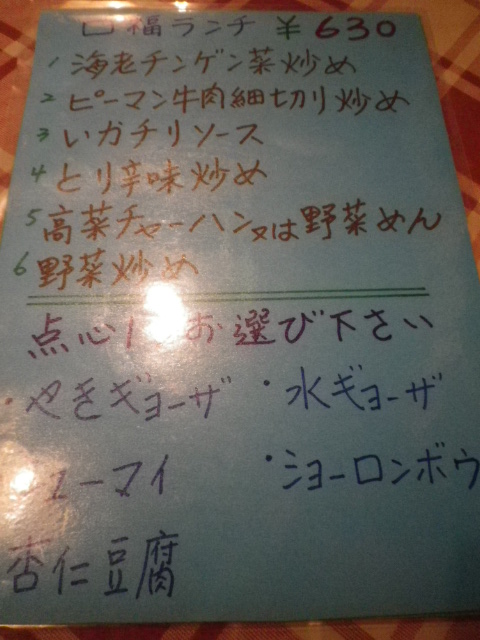 福ランチ ¥630
1 海老チンゲン菜炒め
2 ピーマン牛肉細切り炒め
3 いかチリソース
4 とり辛味炒め
5 高菜チャーハン又は野菜めん
6 野菜炒め
点心1 お選び下さい
・やきギョーザ ・水ギョーザ
ューマイ ・ショーロンボウ
杏仁豆腐